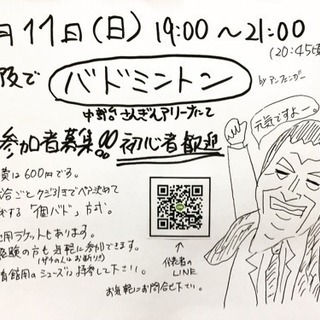 月11日(日) 19:00〜21:00
(20:45
阪で バドミントン by アンフェンガー
中野台 さんぎんアリーナにて
参加者募集!! 初心者歓迎
元気ですよー。
費は600円です。
合ごとクジ引きでペア決めて
する「個バド」方式。
用ラケットもあります。
験の方も気軽に参加できます。
育館用のシューズご持参して下さい。
代表者の
LINE
お気軽にお問合せ下さい。